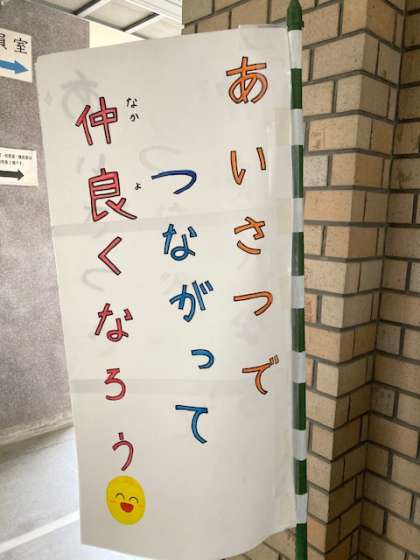 あいさつで
つながって
仲良くなろう
なか
よ
員室